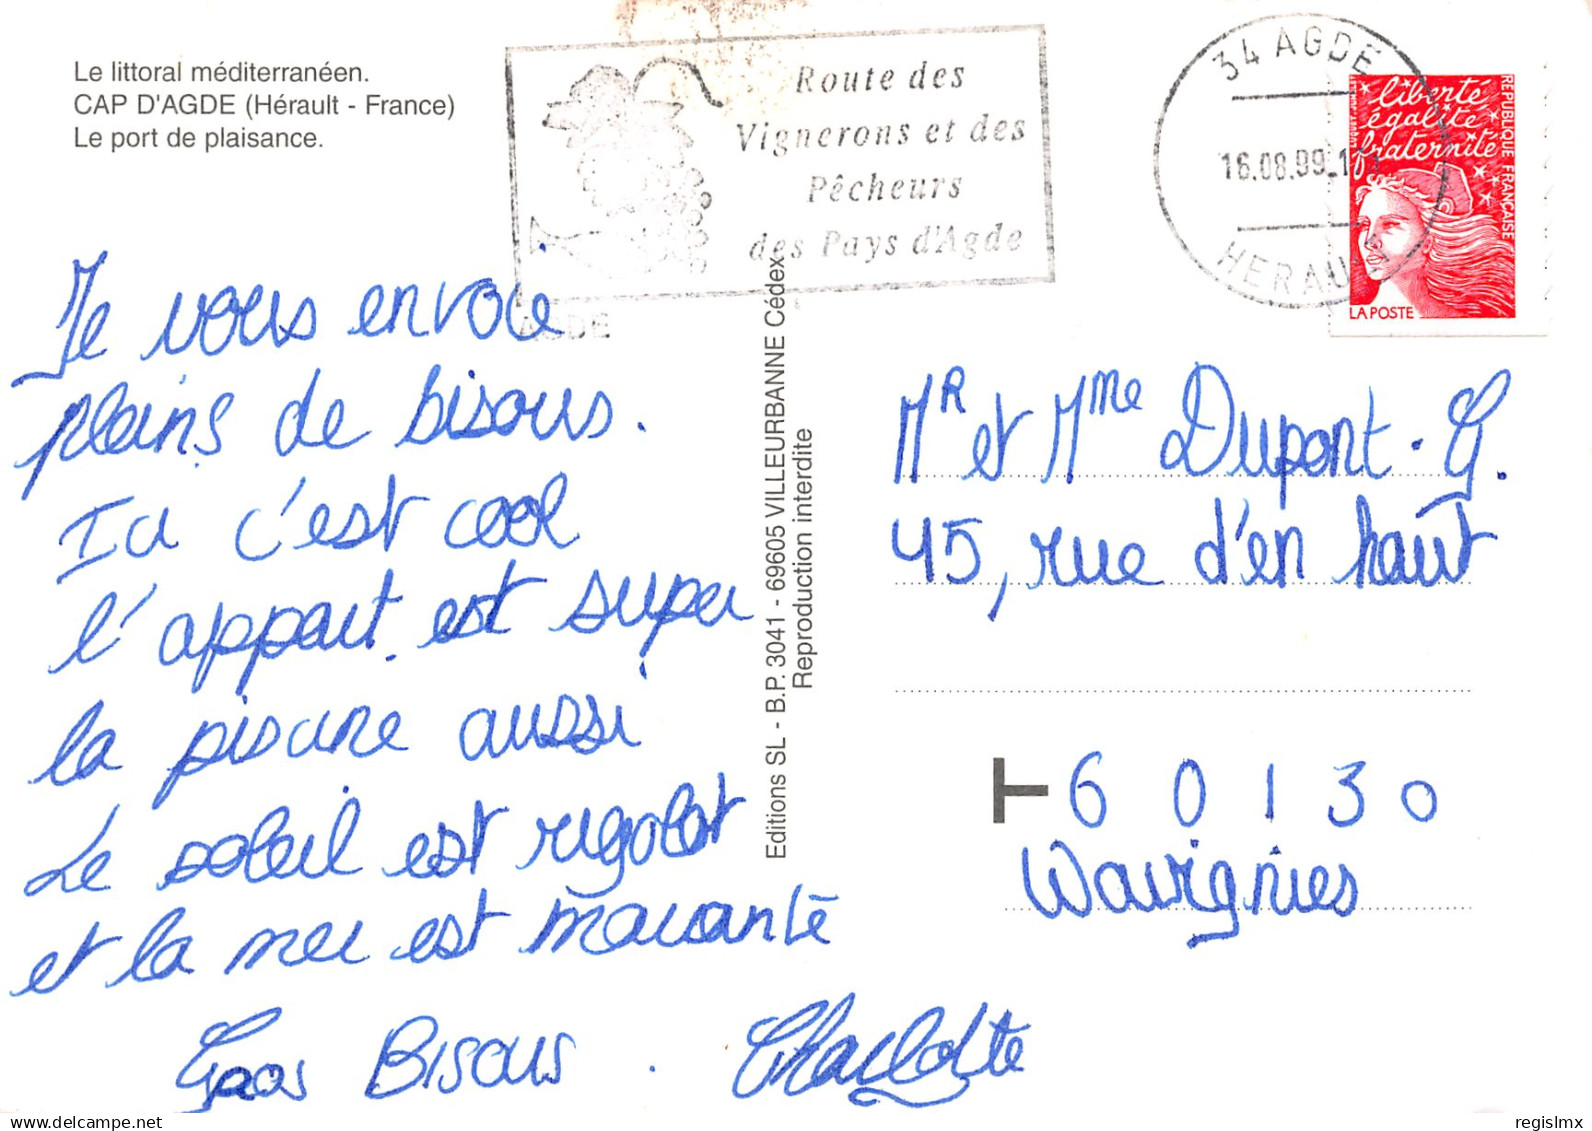 Le littoral méditerranéen.
CAP D'AGDE (Hérault - France)
Le port de plaisance.
Route des
Vignerons et des
Pêcheurs
des Pays d'Agde
AGDE
34 AGDE
16.08.99
HERAULT
liberté
égalité
fraternité
REPUBLIQUE FRANÇAISE
LA POSTE
Je vous envoie
pleins de bisous.
Ici c'est cool
l'appart est super
la piscine aussi
Le soleil est rigolot
et la mer est marante
Gros Bisous. Charlotte
Editions SL - B.P. 3041 - 69605 VILLEURBANNE Cédex
Reproduction interdite
Mr et Mme Dupont. G.
45, rue d'en haut
60130
Wavignies
delcampe.net
regislmx